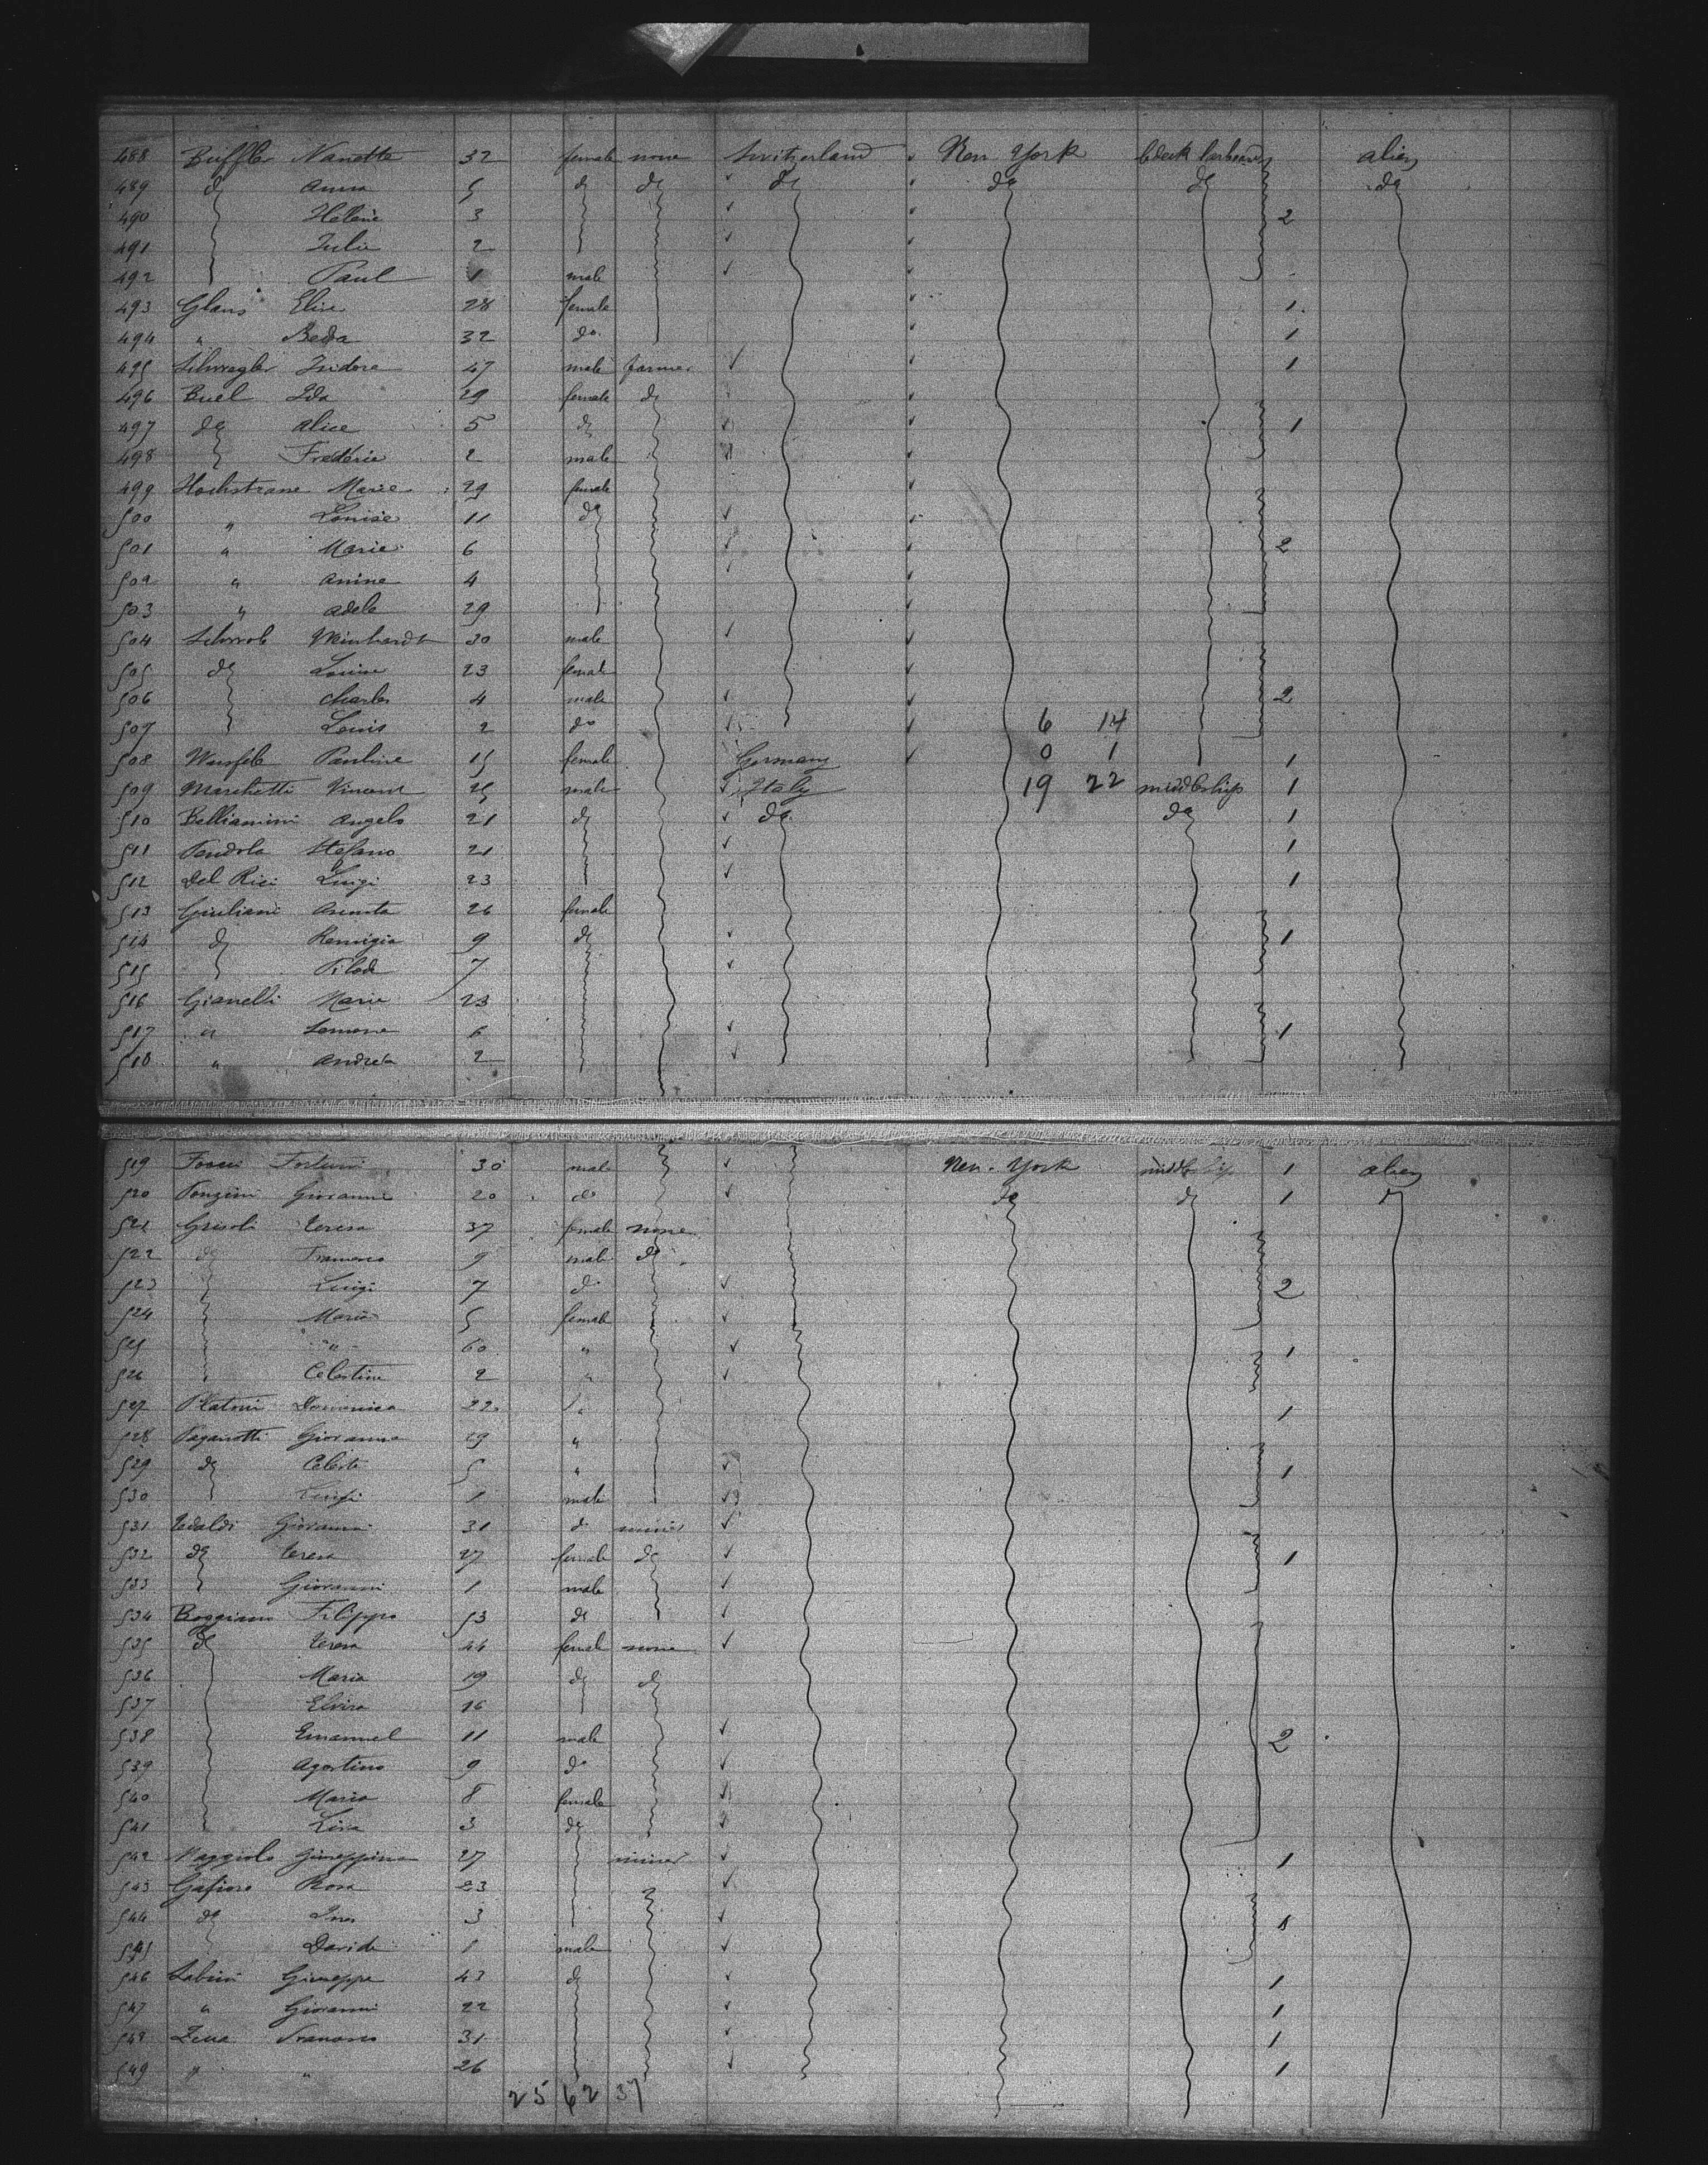 488 Buffler Nanette 32 female none Switzerland New York alien
489 do Anna 5 do do do do do do
490 Helene 3 2
491 Julie 2
492 Paul 1 male
493 Glaus Elise 28 female 1
494 " Beda 32 do 1
495 Isidore 47 male farmer 1
496 Buel Ida 29 female do
497 do Alice 5 do 1
498 Frederic 2 male
499 Marie 29 female
500 " Louise 11 do
501 " Marie 6 2
502 " Anine 4
503 " Adele 29
504 Meinhardt 30 male
505 do Louise 23 female
506 Charles 4 male 2
507 Louis 2 do 6 14
508 Pauline 15 female Germany 0 1 1
509 Marchetti Vincent 25 male Italy 19 22 middleship 1
510 Angelo 21 do do do 1
511 Stefano 21 1
512 Del Luigi 23 1
513 Giuliani Asunta 26 female
514 do Remigia 9 do 1
515 7
516 Gianelli Marie 23
517 " 6 1
518 " Andrea 2
519 30 male New-York middleship 1 alien
520 Giovanni 20 do do do 1 do
521 Teresa 37 female none
522 do Francesco 9 male do
523 Luigi 7 do 2
524 Maria 5 female
525 " 60 " 1
526 Celestina 2 "
527 Platoni Domenica 22 " 1
528 Paganetti Giovanna 29 "
529 do Celeste 5 " 1
530 Luigi 1 male
531 Tedaldi Giovanni 31 do miner
532 do Teresa 27 female do 1
533 Giovanni 1 male
534 Boggiano Filippo 53 do
535 do Teresa 44 female none
536 Maria 19 do do
537 Elvira 16
538 Emanuel 11 male 2
539 Agostino 9 do
540 Maria 8 female
541 Lina 3 do
542 Maggiolo Giuseppina 27 miner 1
543 Rosa 23
544 do Ines 3 1
545 Davide 1 male
546 Giuseppe 43 do 1
547 " Giovanni 22 1
548 Zena Francesco 31 1
549 " " 26 1
25 62 37